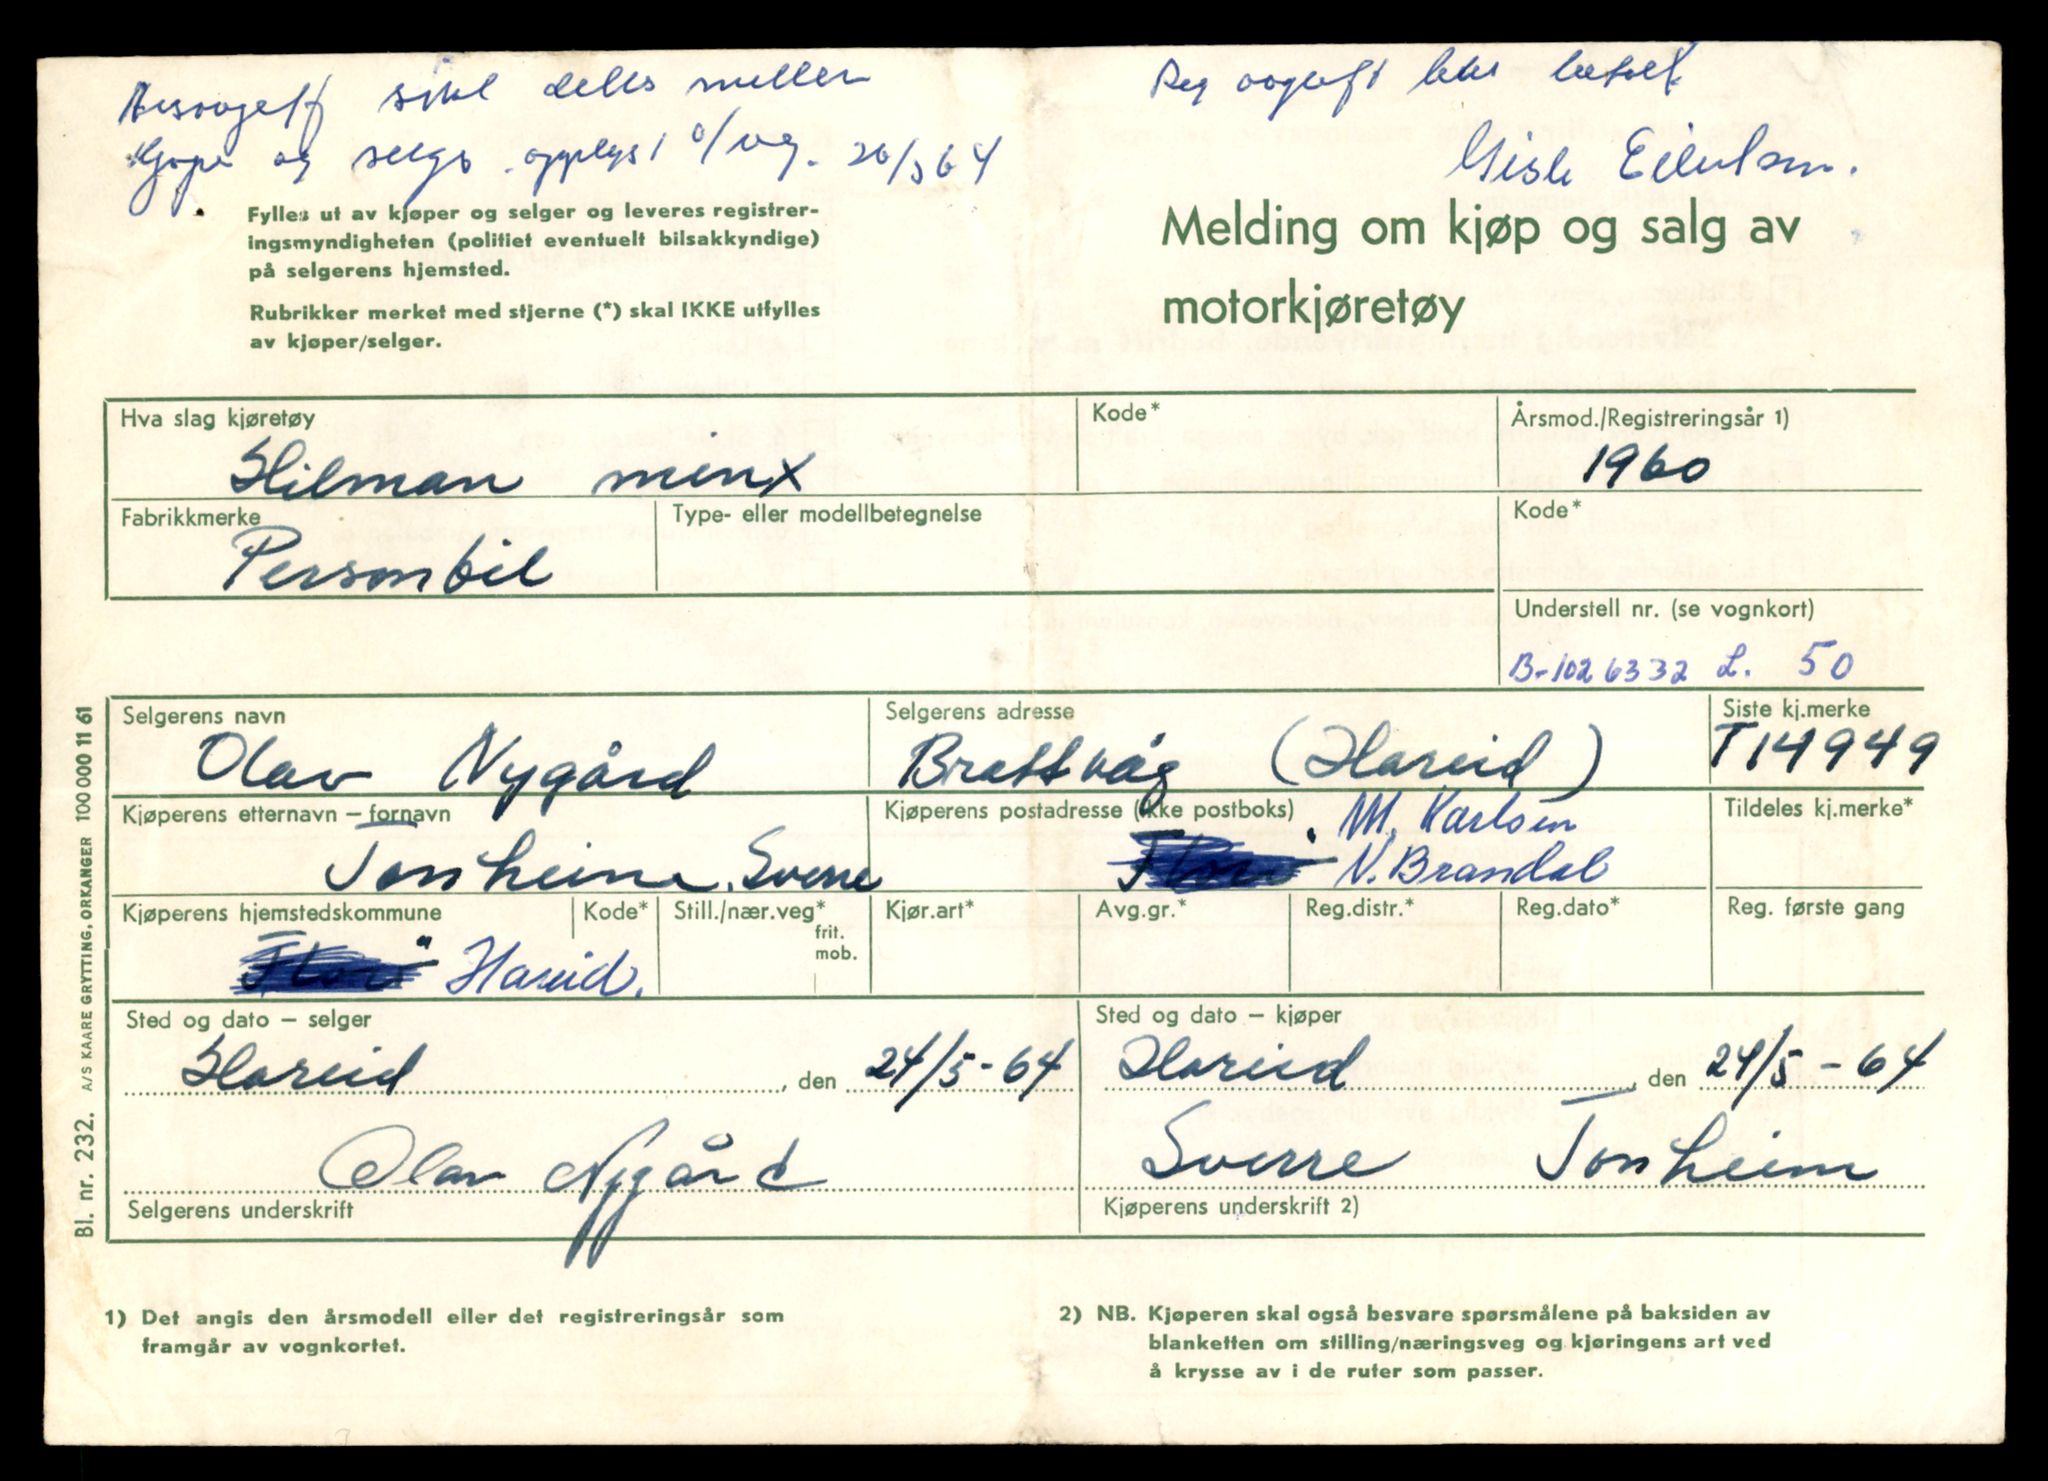 skal deles mellem
og selger opplyst 26/5 64
Reg avgift ikke betalt
Gisle
Fylles ut av kjøper og selger og leveres registrer-
ingsmyndigheten (politiet eventuelt bilsakkyndige)
på selgerens hjemsted.
Rubrikker merket med stjerne (*) skal IKKE utfylles
av kjøper/selger.
Melding om kjøp og salg av
motorkjøretøy
Hva slag kjøretøy
Hilman minx
Kode*
Årsmod./Registreringsår 1)
1960
Fabrikkmerke
Personbil
Type- eller modellbetegnelse
Kode*
Understell nr. (se vognkort)
B-1026332 L. 50
Selgerens navn
Olav Nygård
Selgerens adresse
Brattvåg (Hareid)
Siste kj.merke
T14949
Kjøperens etternavn – fornavn
Tonheim, Sverre
Kjøperens postadresse (ikke postboks)
M. Karlsen
N. Brandal
Tildeles kj.merke*
Kjøperens hjemstedskommune
Florø Hareid.
Kode*
Still./nær.veg*
frit.
mob.
Kjør.art*
Avg.gr.*
Reg.distr.*
Reg.dato*
Reg. første gang
Sted og dato – selger
Hareid, den 24/5-64
Sted og dato – kjøper
Hareid, den 24/5-64
Olav Nygård
Selgerens underskrift
Sverre Tonheim
Kjøperens underskrift 2)
1) Det angis den årsmodell eller det registreringsår som
framgår av vognkortet.
2) NB. Kjøperen skal også besvare spørsmålene på baksiden av
blanketten om stilling/næringsveg og kjøringens art ved
å krysse av i de ruter som passer.
Bl. nr. 232. A/S KAARE GRYTTING, ORKANGER 100 000 11 61